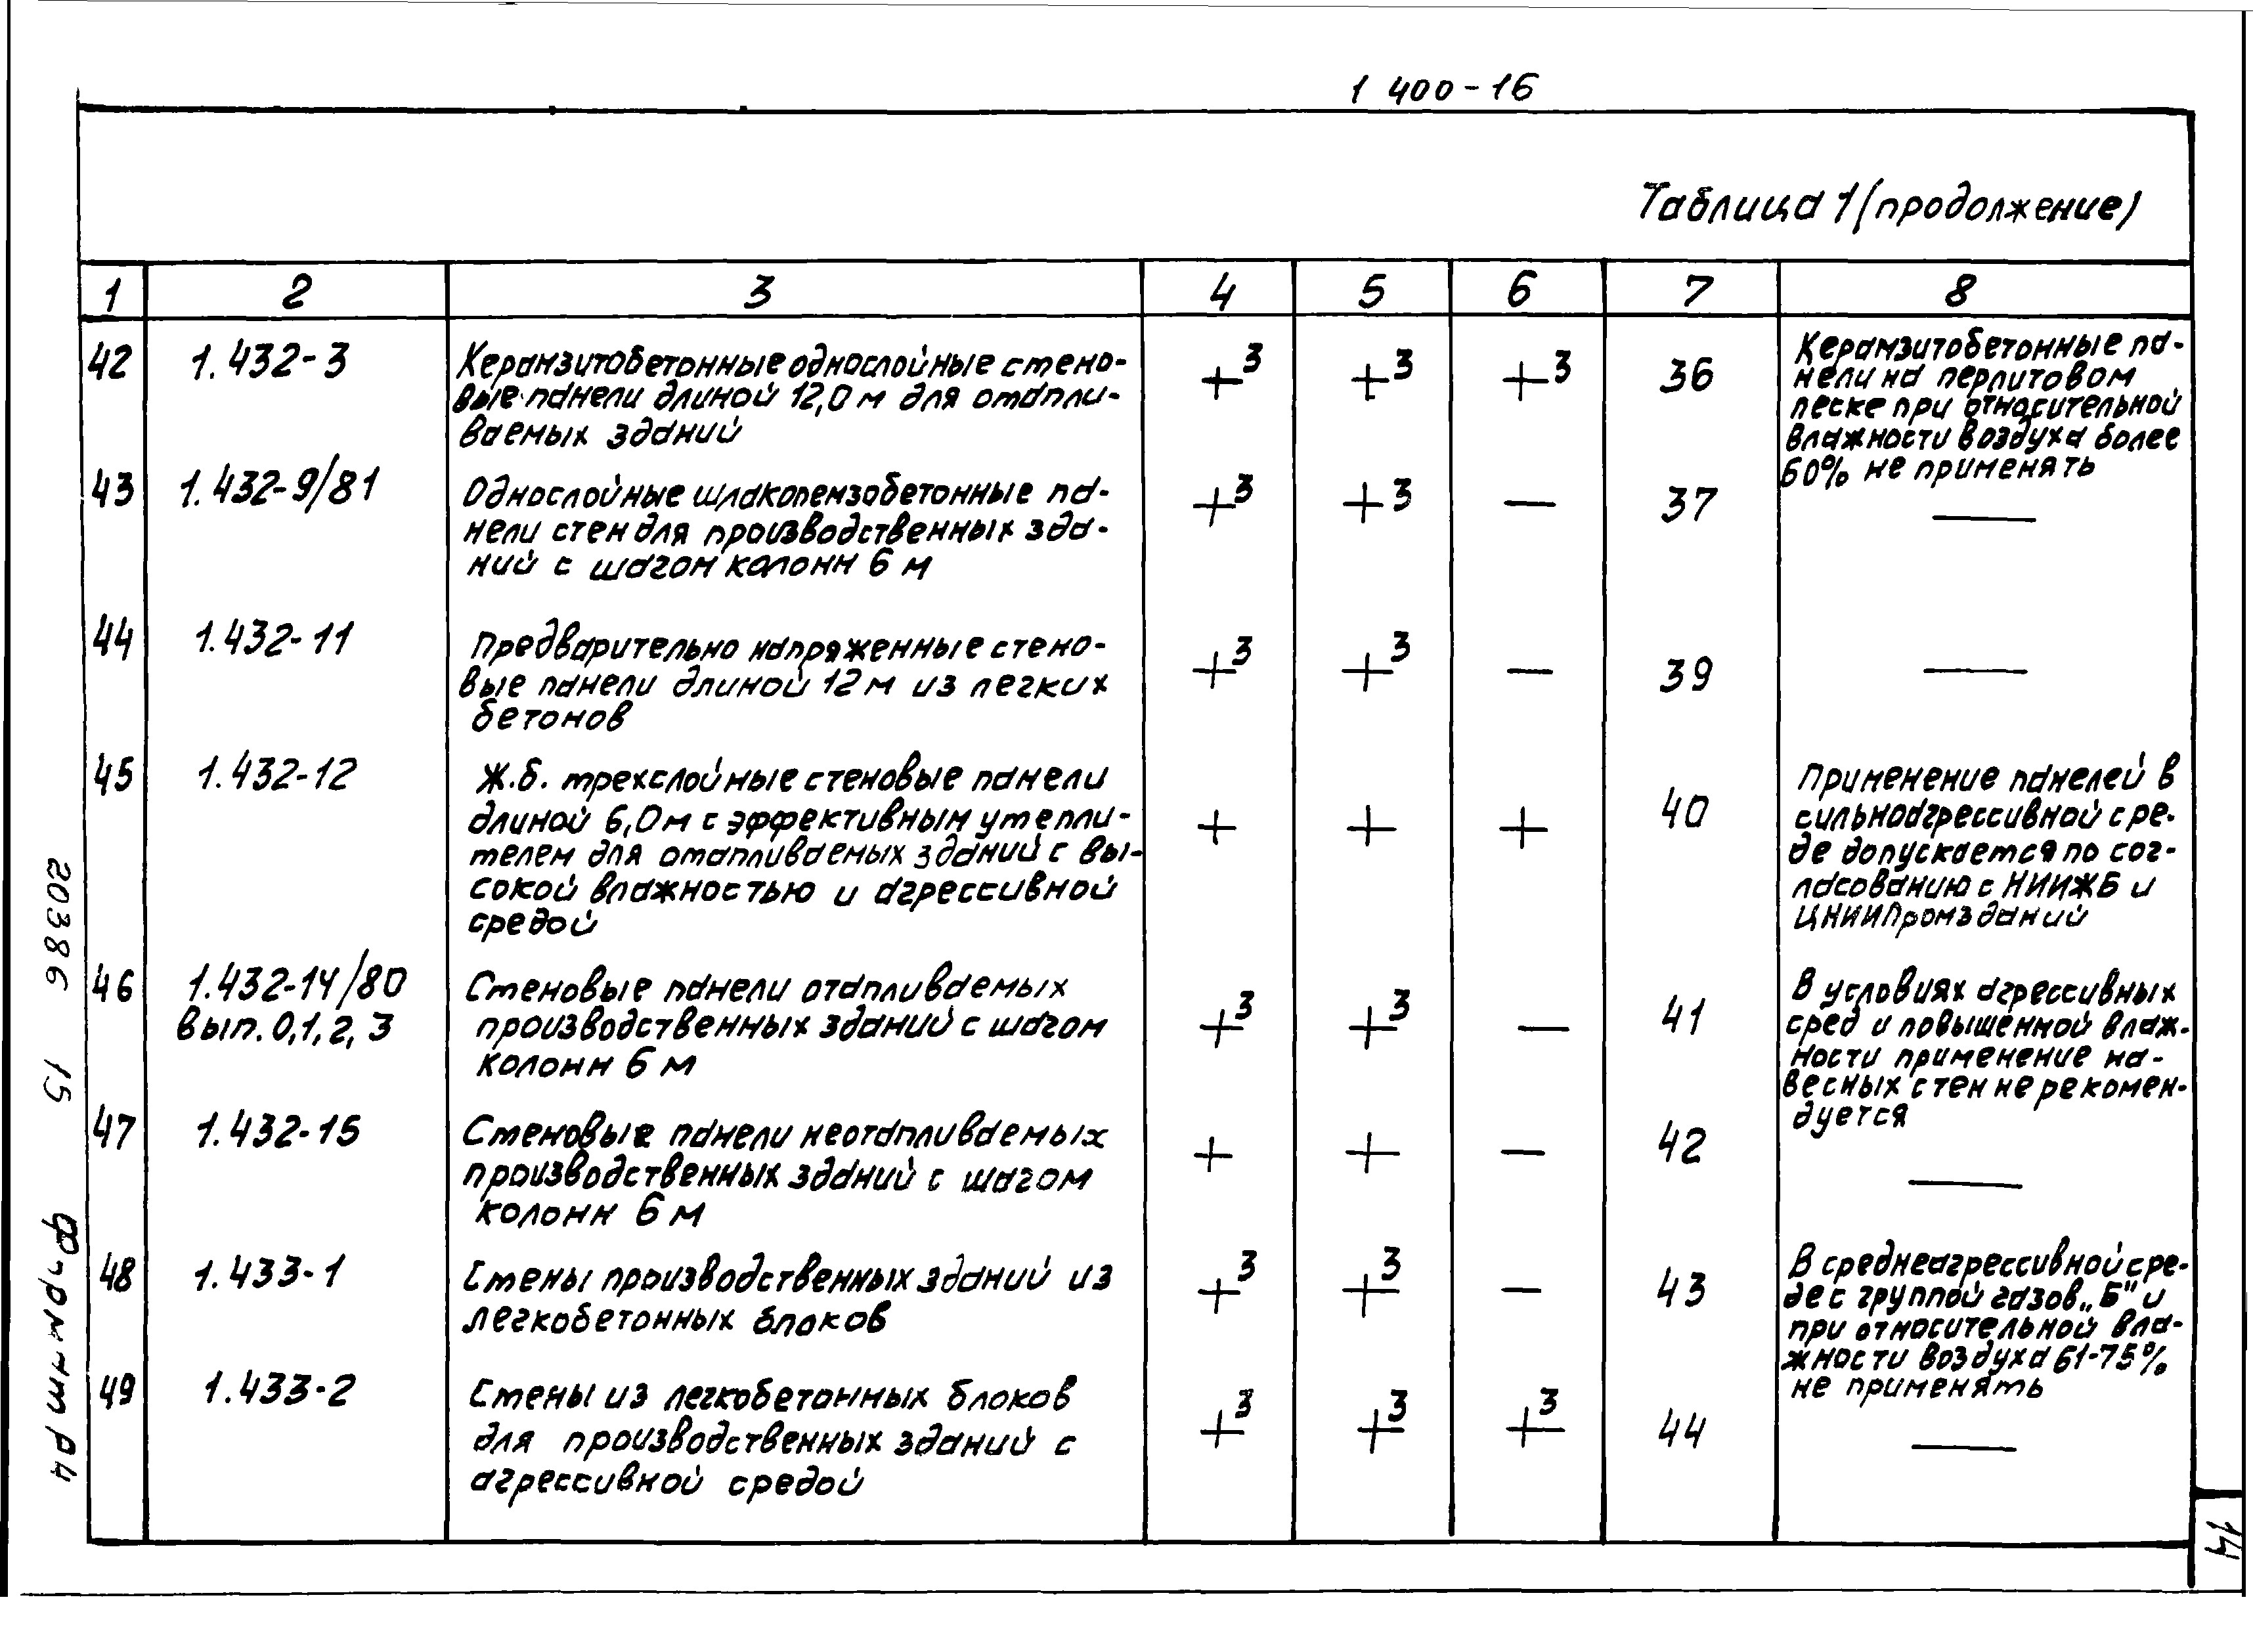 1 400-16
Таблица 1 (продолжение)
1 2 3 4 5 6 7 8
42 1.432-3 Керамзитобетонные однослойные стено- +3 +3 +3 36 Керамзитобетонные па-
вые панели длиной 12,0 м для отапли- нели на перлитовом
ваемых зданий песке при относительной
влажности воздуха более
60% не применять
43 1.432-9/81 Однослойные шлакопемзобетонные па- +3 +3 — 37 —
нели стен для производственных зда-
ний с шагом колонн 6 м
44 1.432-11 Предварительно напряженные стено- +3 +3 — 39 —
вые панели длиной 12 м из легких
бетонов
45 1.432-12 Ж.б. трехслойные стеновые панели + + + 40 Применение панелей в
длиной 6,0 м с эффективным утепли- сильноагрессивной сре-
телем для отапливаемых зданий с вы- де допускается по сог-
сокой влажностью и агрессивной ласованию с НИИЖБ и
средой ЦНИИПромзданий
46 1.432-14/80 Стеновые панели отапливаемых +3 +3 — 41 В условиях агрессивных
вып. 0,1,2,3 производственных зданий с шагом сред и повышенной влаж-
колонн 6 м ности применение на-
весных стен не рекомен-
дуется
47 1.432-15 Стеновые панели неотапливаемых + + — 42 —
производственных зданий с шагом
колонн 6 м
48 1.433-1 Стены производственных зданий из +3 +3 — 43 В среднеагрессивной сре-
легкобетонных блоков де с группой газов „Б" и
при относительной вла-
жности воздуха 61-75%
не применять
49 1.433-2 Стены из легкобетонных блоков +3 +3 +3 44 —
для производственных зданий с
агрессивной средой
20386 15
Формат А4
14